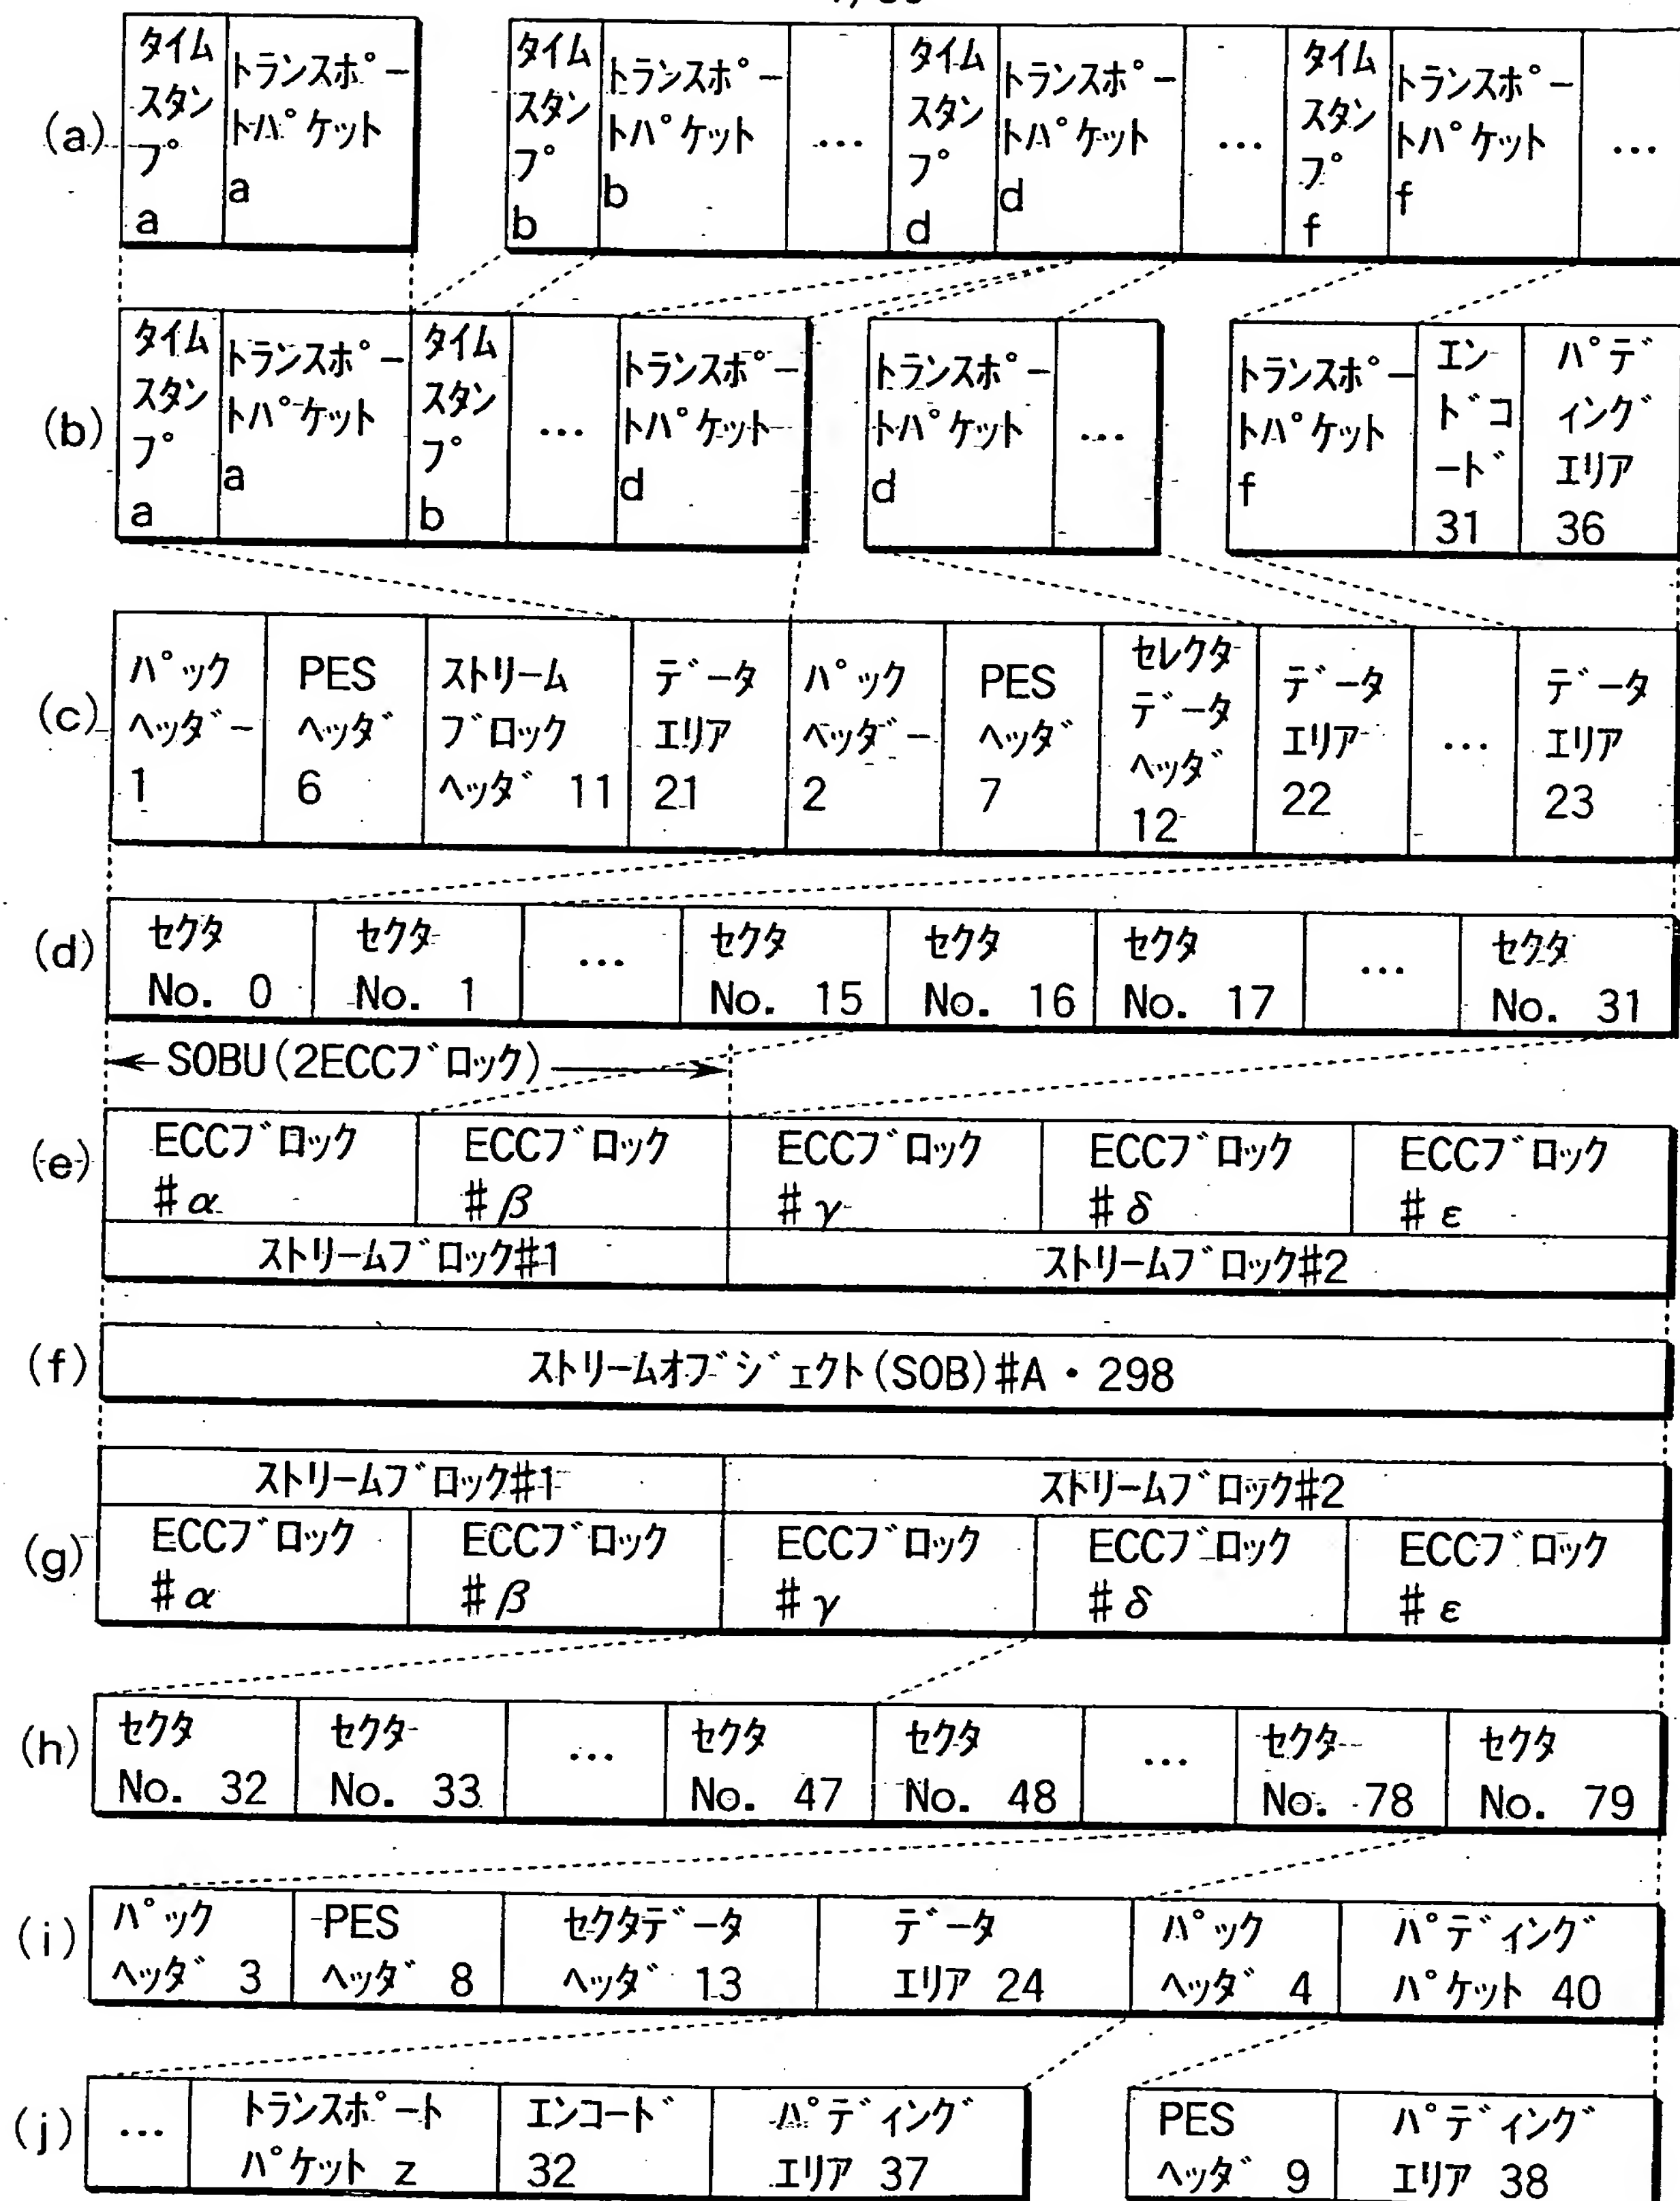 (a)
タイム
スタン
プ
a
トランスポー
トパケット
a
タイム
スタン
プ
b
トランスポー
トパケット
b
...
タイム
スタン
プ
d
トランスポー
トパケット
d
...
タイム
スタン
プ
f
トランスポー
トパケット
f
...
(b)
タイム
スタン
プ
a
トランスポー
トパケット
a
タイム
スタン
プ
b
...
トランスポー
トパケット
d
トランスポー
トパケット
d
...
トランスポー
トパケット
f
エン
ドコ
ード
31
パデ
ィング
エリア
36
(c)
パック
ヘッダー
1
PES
ヘッダ
6
ストリーム
ブロック
ヘッダ 11
データ
エリア
21
パック
ヘッダー
2
PES
ヘッダ
7
セレクタ
データ
ヘッダ
12
データ
エリア
22
...
データ
エリア
23
(d)
セクタ
No. 0
セクタ
No. 1
...
セクタ
No. 15
セクタ
No. 16
セクタ
No. 17
...
セクタ
No. 31
SOBU(2ECCブロック)
(e)
ECCブロック
#α
ECCブロック
#β
ECCブロック
#γ
ECCブロック
#δ
ECCブロック
#ε
ストリームブロック#1
ストリームブロック#2
(f)
ストリームオブジェクト(SOB)#A・298
(g)
ストリームブロック#1
ストリームブロック#2
ECCブロック
#α
ECCブロック
#β
ECCブロック
#γ
ECCブロック
#δ
ECCブロック
#ε
(h)
セクタ
No. 32
セクタ
No. 33
...
セクタ
No. 47
セクタ
No. 48
...
セクタ
No. 78
セクタ
No. 79
(i)
パック
ヘッダ 3
PES
ヘッダ 8
セクタデータ
ヘッダ 13
データ
エリア 24
パック
ヘッダ 4
パディング
パケット 40
(j)
...
トランスポート
パケット z
エンコード
32
パディング
エリア 37
PES
ヘッダ 9
パディング
エリア 38